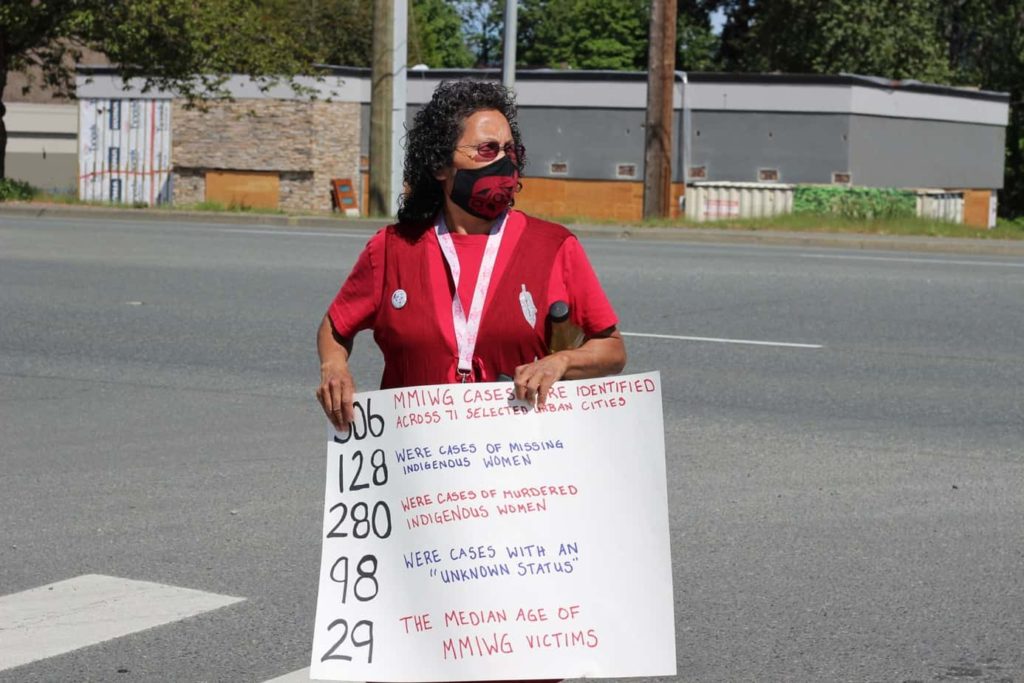 506 MMIWG CASES WERE IDENTIFIED
ACROSS 71 SELECTED URBAN CITIES
128 WERE CASES OF MISSING
INDIGENOUS WOMEN
280 WERE CASES OF MURDERED
INDIGENOUS WOMEN
98 WERE CASES WITH AN
"UNKNOWN STATUS"
29 THE MEDIAN AGE OF
MMIWG VICTIMS